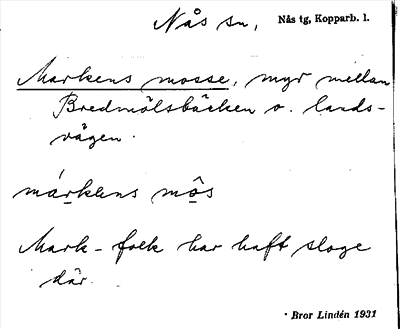 Nås sn, Nås tg, Kopparb. l.
Markens mosse, myr mellan
Bredmölsbäcken o. lands-
vägen.
márkens môs
Mark-folk har haft sloge
där.
Bror Lindén 1931